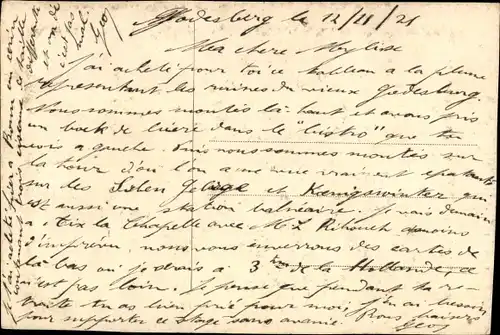 Godesberg le 12/11/21
Ma chère
J'ai acheté pour toi ce tableau a la plume
représentant les ruines du vieux Godesburg
Nous sommes montés là-haut et avons pris
un bock de bière dans le "bistro" que tu
vois a gauche. Puis nous sommes montés sur
la tour d'où l'on a une vue vraiment epatante
sur les et Kœnigswinter qui
est aussi une station balnéaire. Je vais demain
a Aix la Chapelle avec Mr
nous vous enverrons des cartes de
là bas où je serais a 3 km de la Hollande ce
n'est pas loin. Je pense que pendant ta re-
traite tu as bien prié pour moi, j'en ai besoin
pour supporter ce stage sans avanie. Bons baisers
Geo
J'ai acheté hier a Bonn un
c'est pas
mal.
Geo